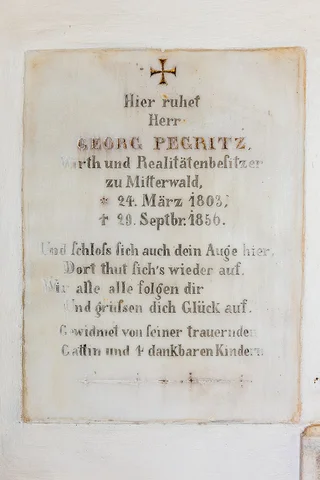 Hier ruhet
Herr
GEORG PEGRITZ,
Wirth und Realitätenbesitzer
zu Mitterwald,
* 24. März 1803,
† 29. Septbr. 1856.
Und schloss sich auch dein Auge hier,
Dort thut sich's wieder auf.
Wir alle alle folgen dir
Und grüssen dich Glück auf.
Gewidmet von seiner trauernden
Gattin und 4 dankbaren Kindern